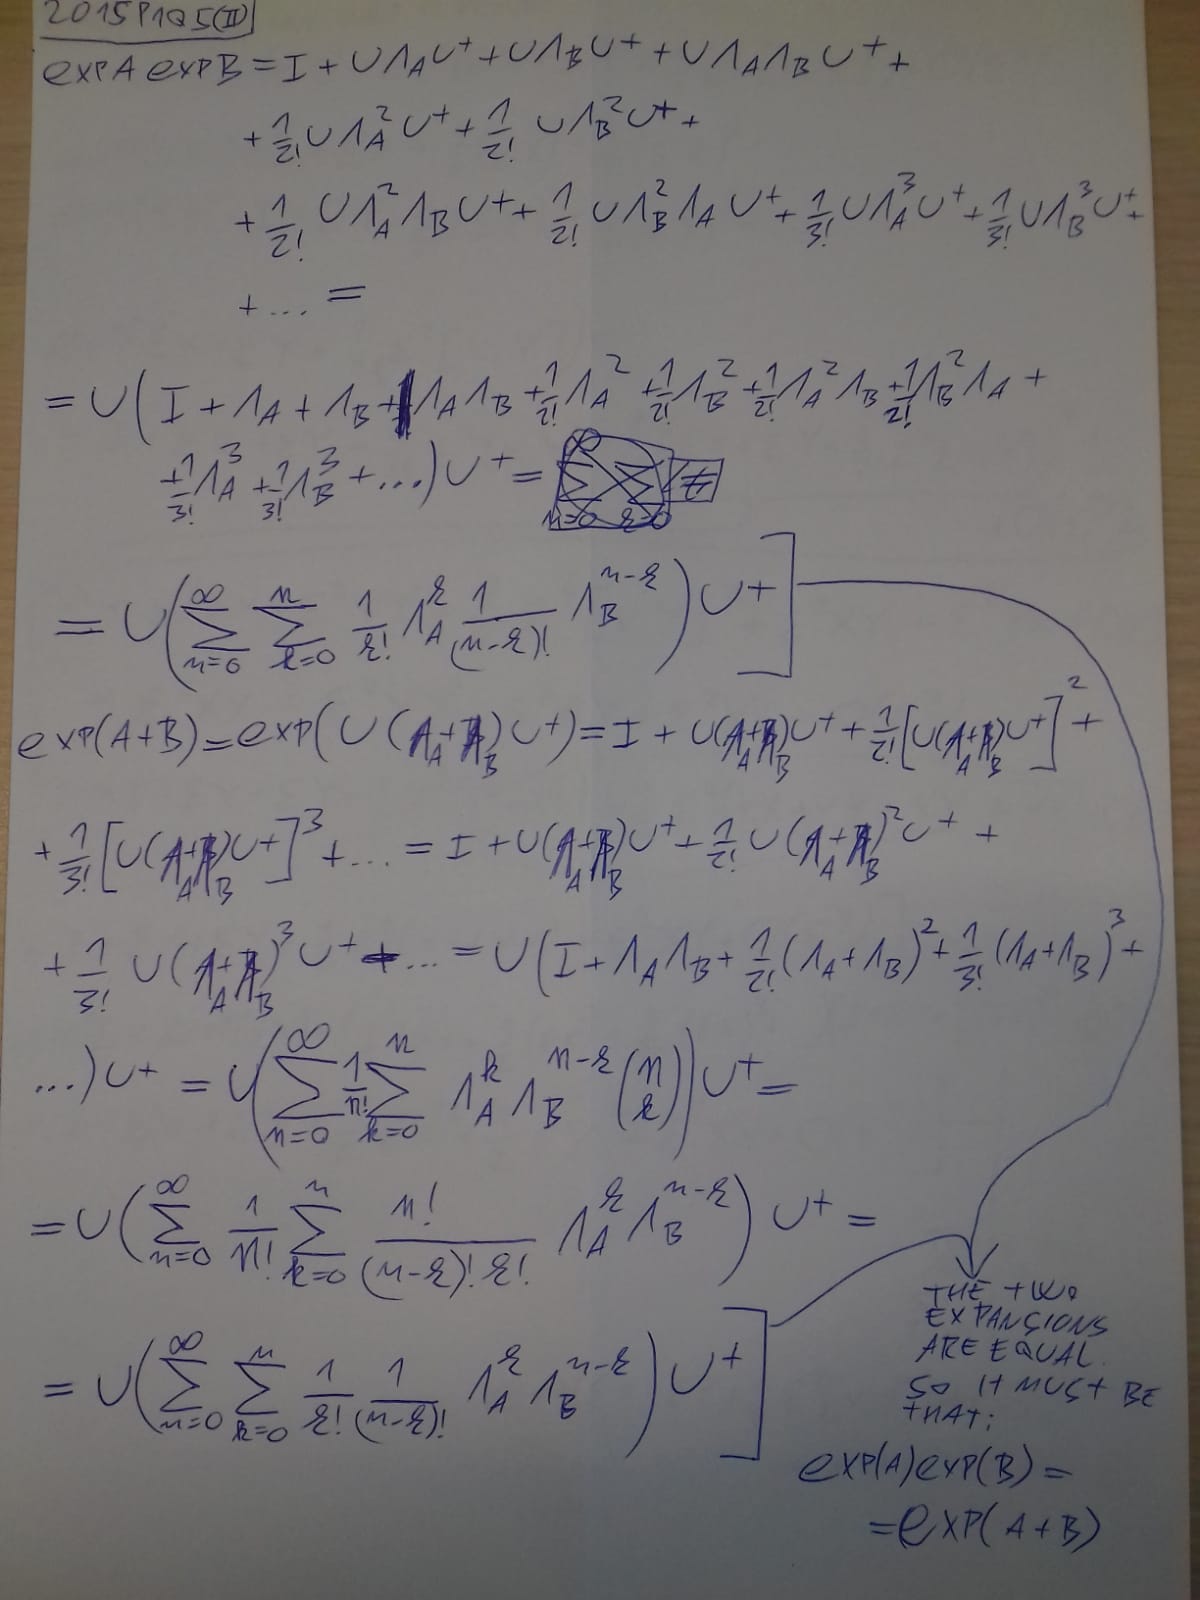 2015P1Q5(II)
expA expB = I + UΛ_AU⁺ + UΛ_BU⁺ + UΛ_AΛ_BU⁺ +
+ 1/2! UΛ_A²U⁺ + 1/2! UΛ_B²U⁺ +
+ 1/2! UΛ_A²Λ_BU⁺ + 1/2! UΛ_B²Λ_AU⁺ + 1/3! UΛ_A³U⁺ + 1/3! UΛ_B³U⁺ +
+ ... =
= U(I + Λ_A + Λ_B + Λ_AΛ_B + 1/2! Λ_A² + 1/2! Λ_B² + 1/2! Λ_A²Λ_B + 1/2! Λ_B²Λ_A +
+ 1/3! Λ_A³ + 1/3! Λ_B³ + ...)U⁺ =
= U(∑_{n=0}^{∞} ∑_{k=0}^{n} 1/k! Λ_A^k 1/(n-k)! Λ_B^{n-k})U⁺]
exp(A+B) = exp(U(Λ_A+Λ_B)U⁺) = I + U(Λ_A+Λ_B)U⁺ + 1/2! [U(Λ_A+Λ_B)U⁺]² +
+ 1/3! [U(Λ_A+Λ_B)U⁺]³ + ... = I + U(Λ_A+Λ_B)U⁺ + 1/2! U(Λ_A+Λ_B)²U⁺ +
+ 1/3! U(Λ_A+Λ_B)³U⁺ + ... = U(I + Λ_AΛ_B + 1/2! (Λ_A+Λ_B)² + 1/3! (Λ_A+Λ_B)³ +
...)U⁺ = U(∑_{n=0}^{∞} 1/n! ∑_{k=0}^{n} Λ_A^k Λ_B^{n-k} (n k))U⁺ =
= U(∑_{n=0}^{∞} 1/n! ∑_{k=0}^{n} n!/((n-k)! k!) Λ_A^k Λ_B^{n-k})U⁺ =
= U(∑_{n=0}^{∞} ∑_{k=0}^{n} 1/k! 1/(n-k)! Λ_A^k Λ_B^{n-k})U⁺]
THE TWO
EXPANSIONS
ARE EQUAL.
SO IT MUST BE
THAT:
exp(A)exp(B) =
= exp(A+B)